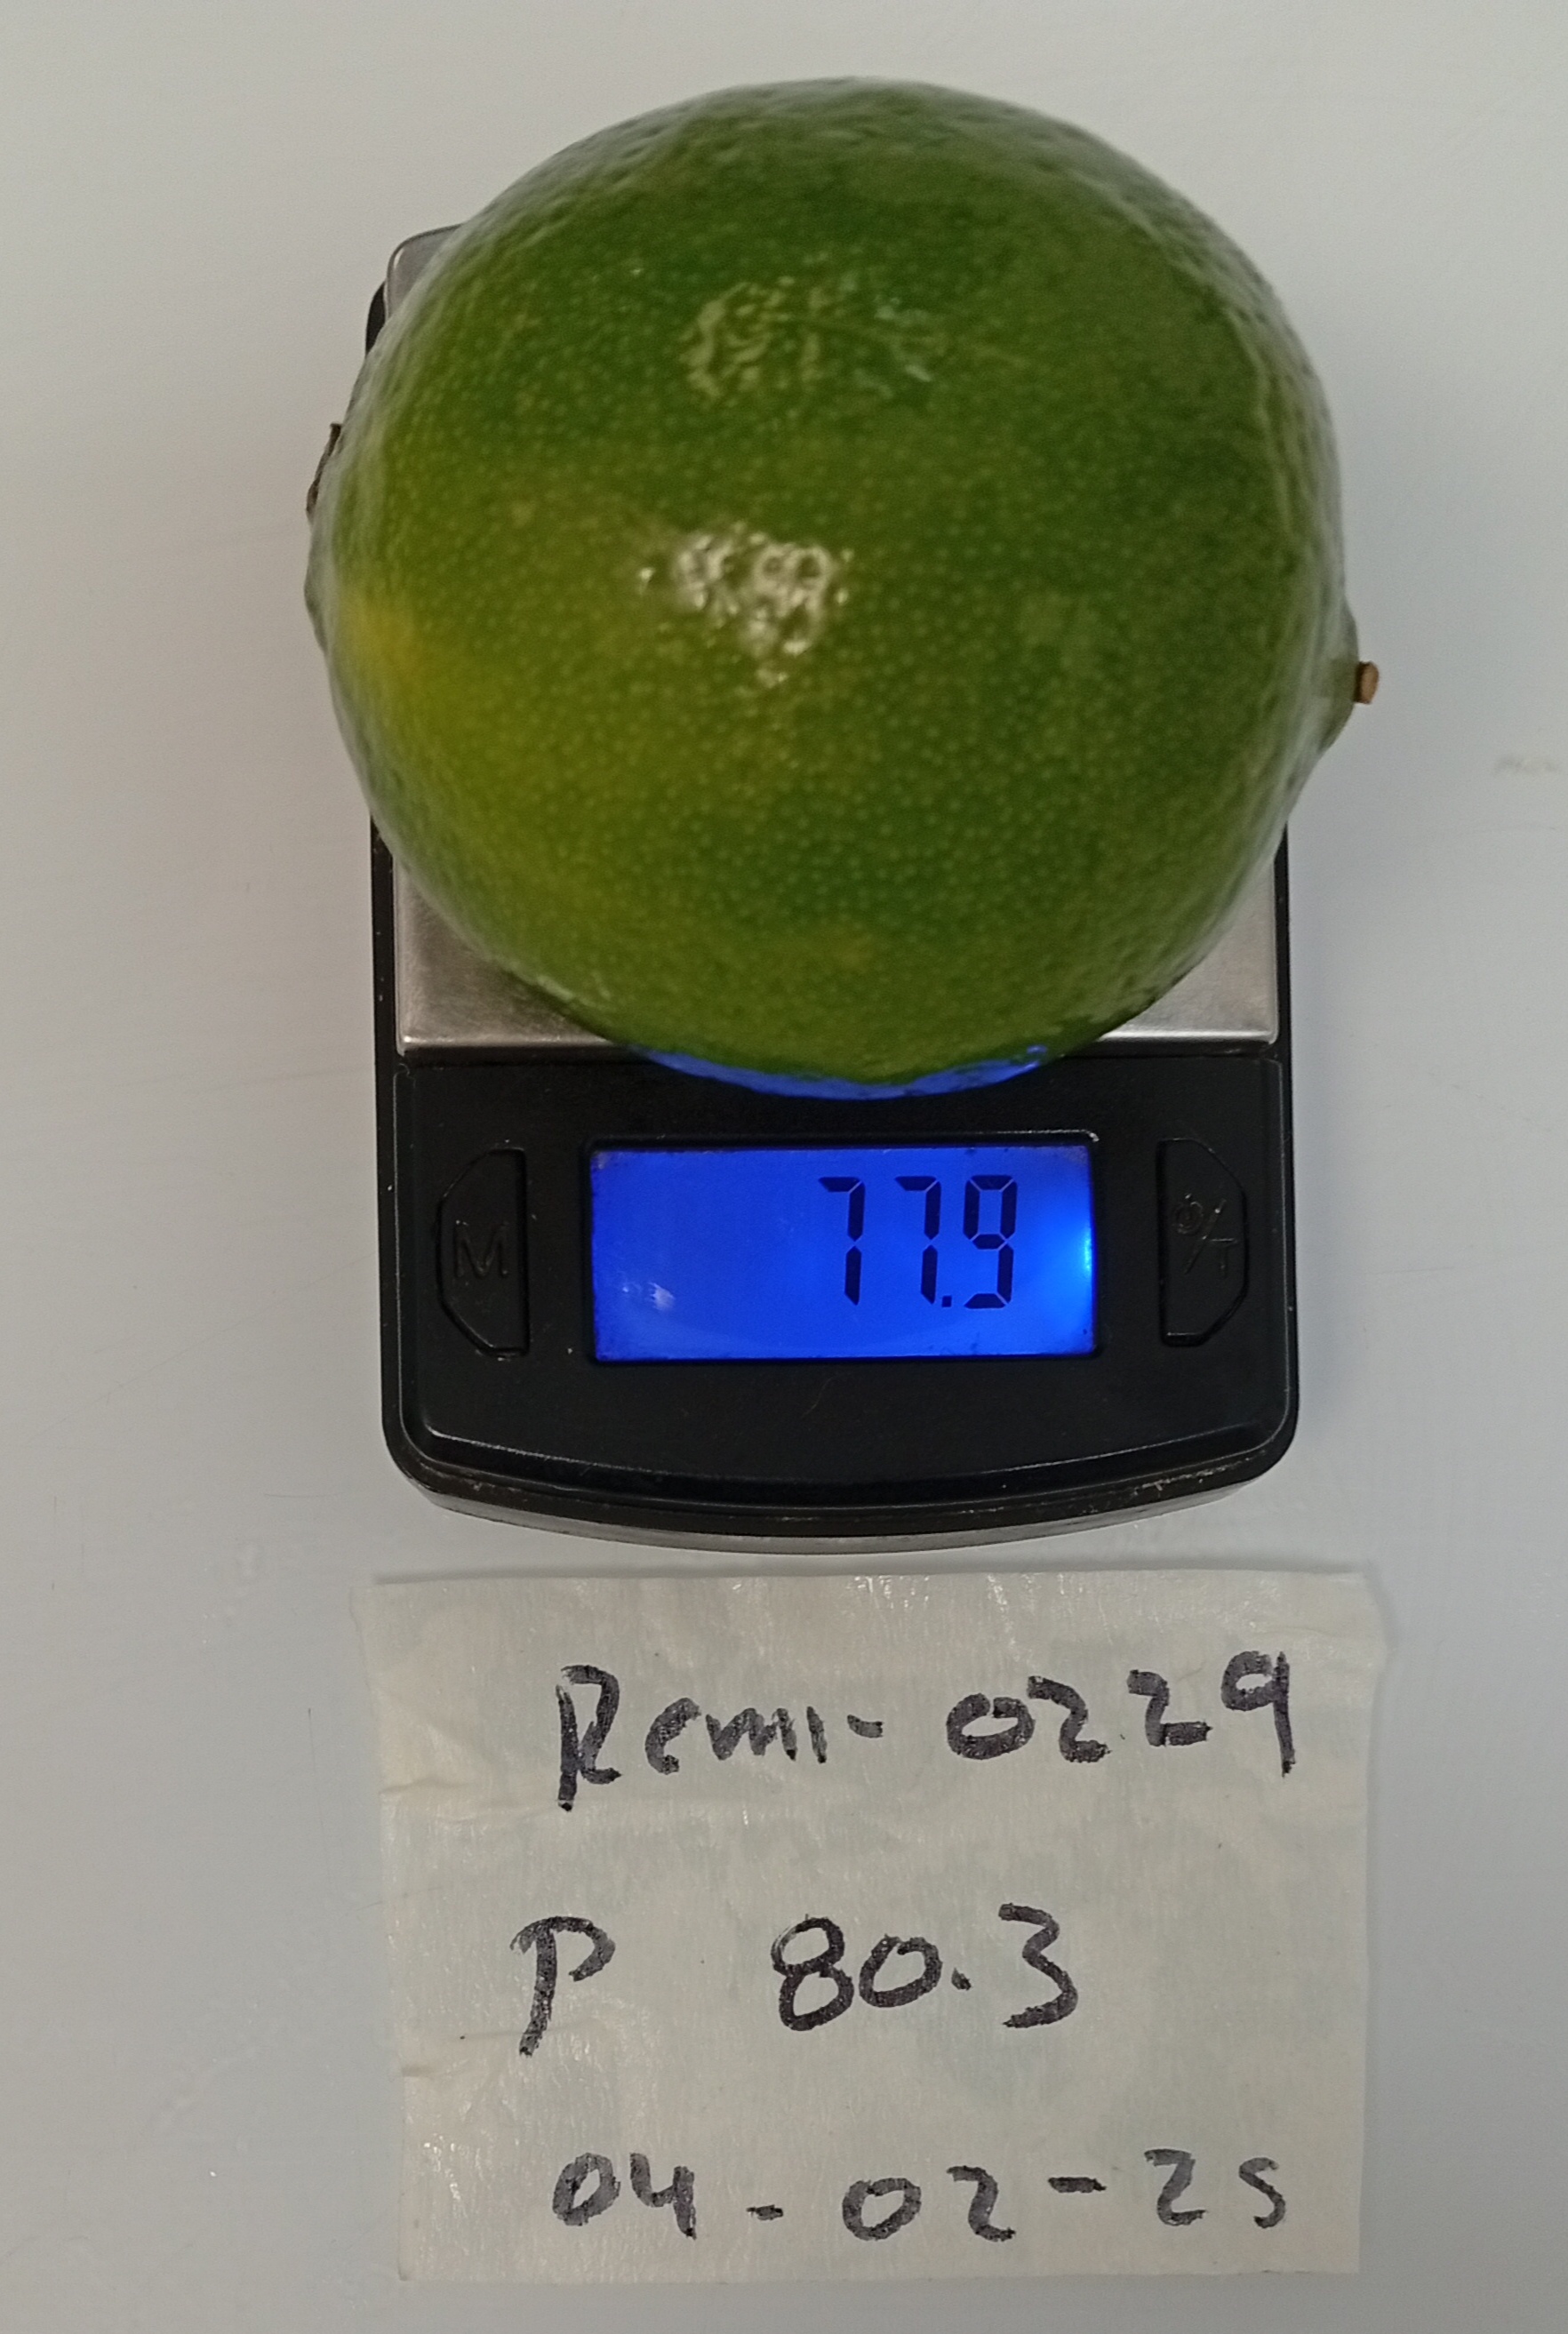 77.9
M
⏻/T
Remi-0229
P 80.3
04-02-25